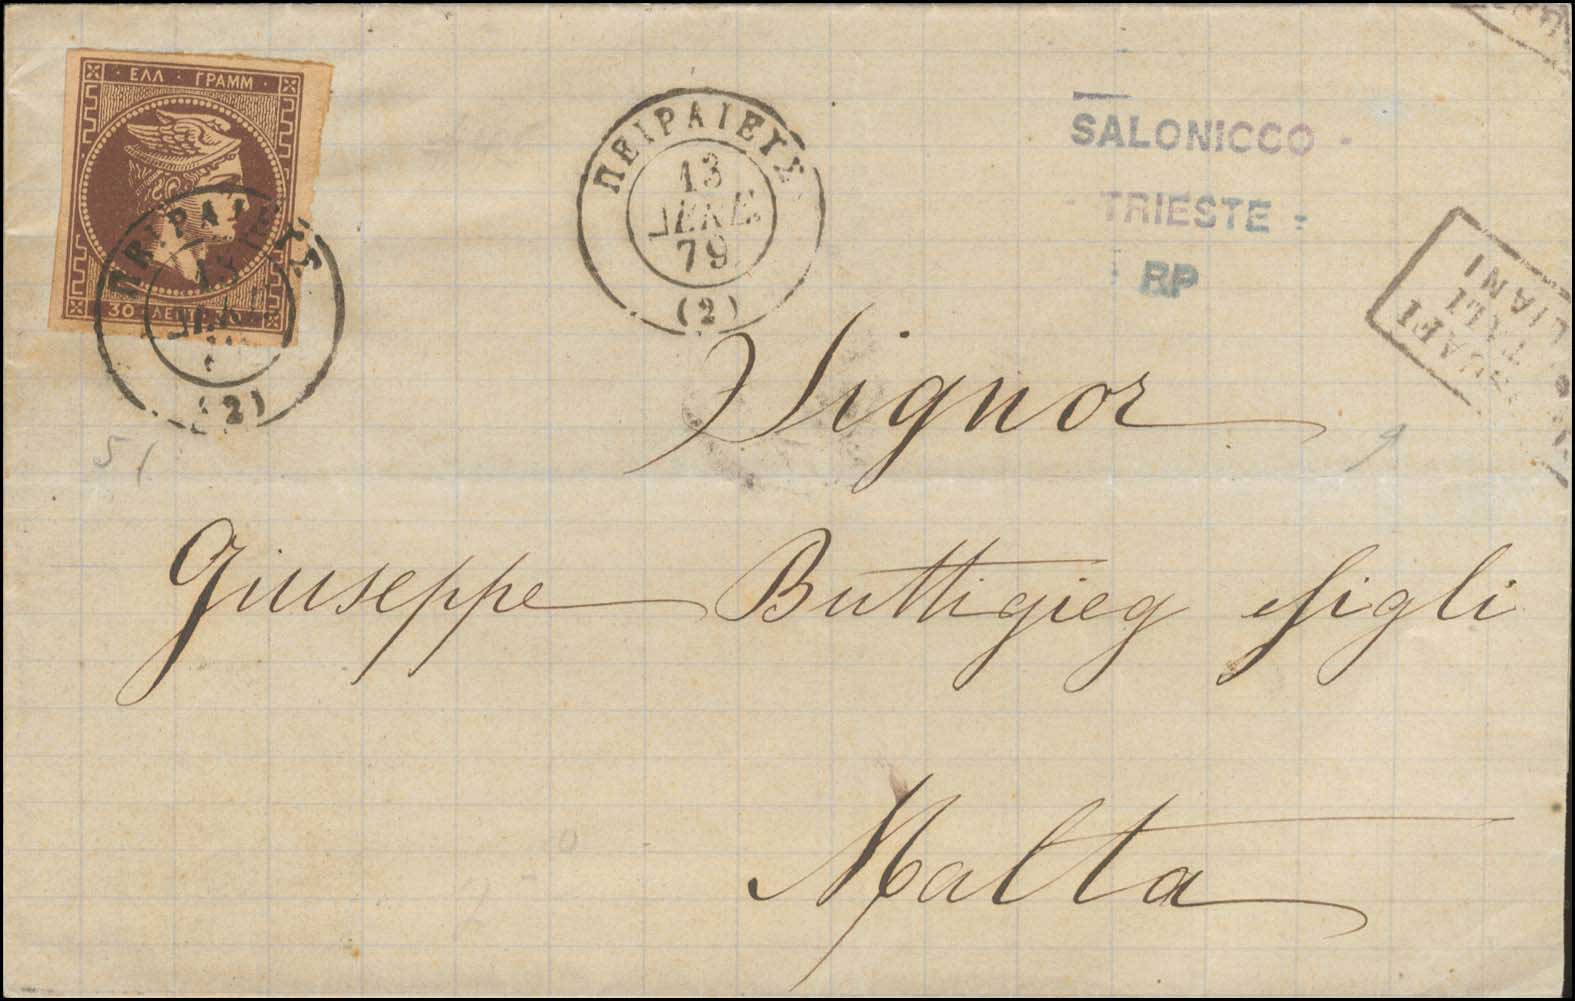 ΕΛΛ · ΓΡΑΜΜ
30
ΠΕΙΡΑΙΕΥΣ
(2)
ΠΕΙΡΑΙΕΥΣ
13
ΔΕΚΕ.
79
(2)
SALONICCO -
- TRIESTE -
RP
PIROSCAFI
POSTALI
ITALIANI
Signor
Giuseppe Buttigieg & figli
Malta